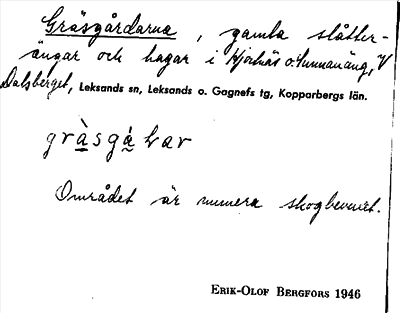 Gräsgårdarna, gamla slåtter-
ängar och hagar i Hjortnäs o. Sunnanäng, V
Dalsberget, Leksands sn, Leksands o. Gagnefs tg, Kopparbergs län.
gràsgá̰ɽar
Området är numera skogbevuxet.
ERIK-OLOF BERGFORS 1946